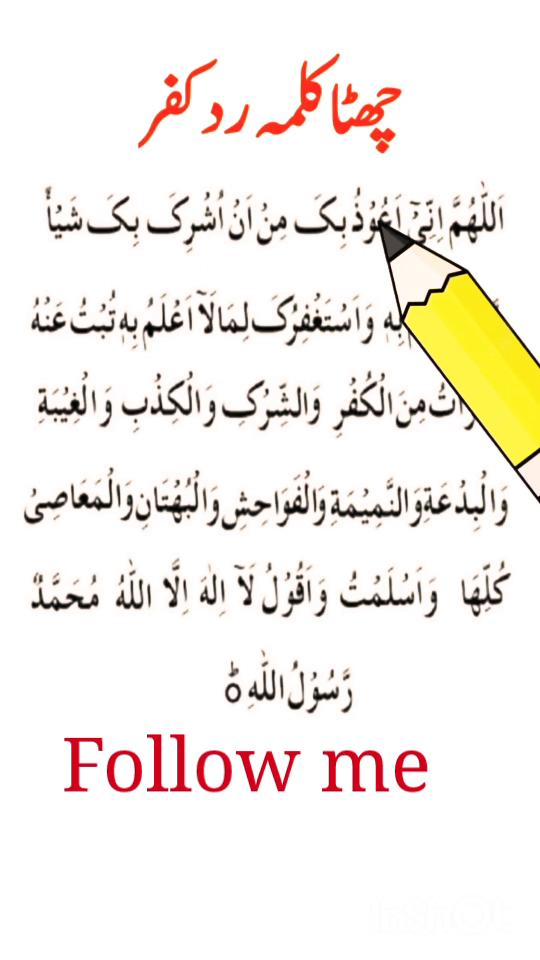 چھٹا کلمہ رد کفر
اَللّٰهُمَّ اِنِّیْۤ اَعُوْذُ بِکَ مِنْ اَنْ اُشْرِکَ بِکَ شَیْأً
بِهٖ وَاَسْتَغْفِرُکَ لِمَا لَاۤ اَعْلَمُ بِهٖ تُبْتُ عَنْهُ
مِنَ الْکُفْرِ وَالشِّرْکِ وَالْکِذْبِ وَالْغِیْبَةِ
وَالْبِدْعَةِ وَالنَّمِیْمَةِ وَالْفَوَاحِشِ وَالْبُهْتَانِ وَالْمَعَاصِیْ
کُلِّهَا وَاَسْلَمْتُ وَاَقُوْلُ لَاۤ اِلٰهَ اِلَّا اللّٰهُ مُحَمَّدٌ
رَّسُوْلُ اللّٰهِ ؕ
Follow me